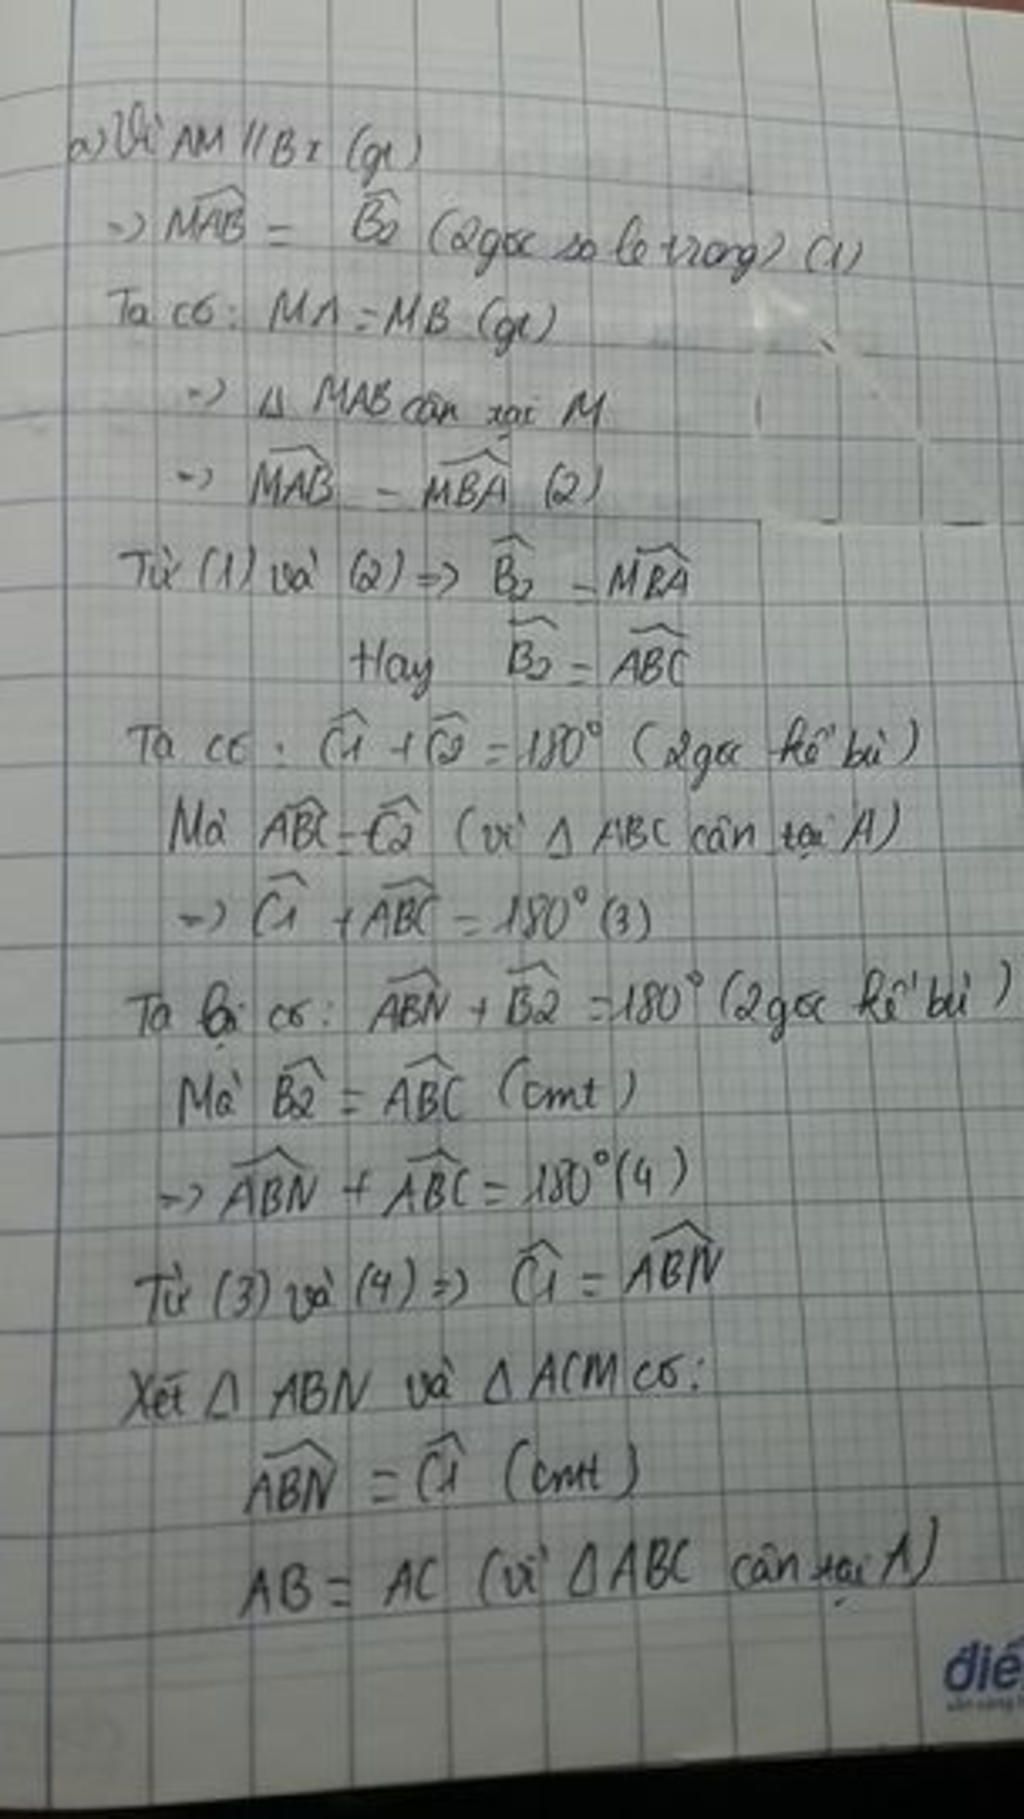 a) Vì AM // Bx (gt)
=> MAB = B2 (2 góc so le trong) (1)
Ta có: MA = MB (gt)
=> Δ MAB cân tại M
=> MAB = MBA (2)
Từ (1) và (2) => B2 = MBA
Hay B2 = ABC
Ta có: C1 + C2 = 180° (2 góc kề bù)
Mà ABC = C2 (vì Δ ABC cân tại A)
=> C1 + ABC = 180° (3)
Ta lại có: ABN + B2 = 180° (2 góc kề bù)
Mà B2 = ABC (cmt)
=> ABN + ABC = 180° (4)
Từ (3) và (4) => C1 = ABN
Xét Δ ABN và Δ ACM có:
ABN = C1 (cmt)
AB = AC (vì Δ ABC cân tại A)